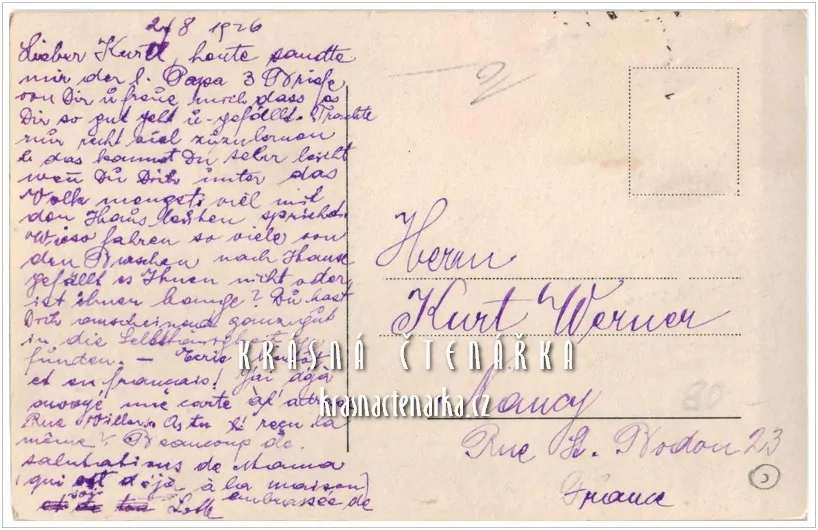 2/8 1926
Lieber Kurtl, heute sandte
mir der l. Papa 3 Briefe
von Dir ü freue mich dass es
Dir so gut geht ü gefällt. Trachte
nür recht viel zúzulernen
das kannst Dú sehr leicht
wen Dú Dich únter das
Volk mengst viel mit
den Haúsleúten sprichst.
Wieso fahren so viele von
den Burschen nach Hause
gefällt es Ihnen nicht oder
ist ihnen bange? Dú hast
Dich anscheinend ganz gút
in die Selbst
fúnden. —
et en français! J'ai déjà
envoyé une carte à l'
Rue Willer. As tu la
même? Beaucoup de
salutations de Mama
(qui est déjà à la maison)
embrassée de
Herrn
Kurt Werner
Nancy
Rue 23
France
KRÁSNÁ ČTENÁŘKA
krasnactenarka.cz